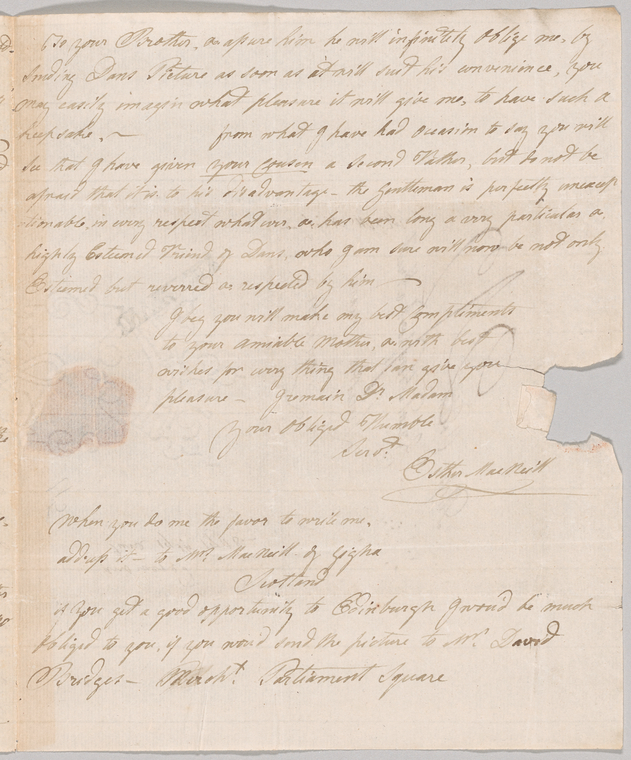 To your Brother, & assure him he will infinitely oblige me, by
Sending Dans Picture as soon as it will suit his convenience, You
may easily imagin what pleasure it will give me, to have such a
keepsake. ~ from what I have had ocasion to say you will
See that I have given your Cousen a second Father, but do not be
afraid that it is to his disadvantage – the Gentleman is perfectly unexcep
tionable, in every respect what ever, & has been long a very particular &
highly Esteemed Friend of Dans, who I am sure will now be not only
Esteemed but reverred & respected by him —
I beg you will make my best Compliments
to your amiable Mother, & with best
wishes for every thing that can give you
pleasure – I remain Dr Madam
Your Obliged Humble
Servt.
Esther MacNeill
When you do me the favor to write me,
address it – to Mrs MacNeill of Gigha
Scotland
if You get a good opportunity to Edinburgh I wou'd be much
obliged to you, if you wou'd send the picture to Mr. David
Bridges – Mercht. Parliament Square